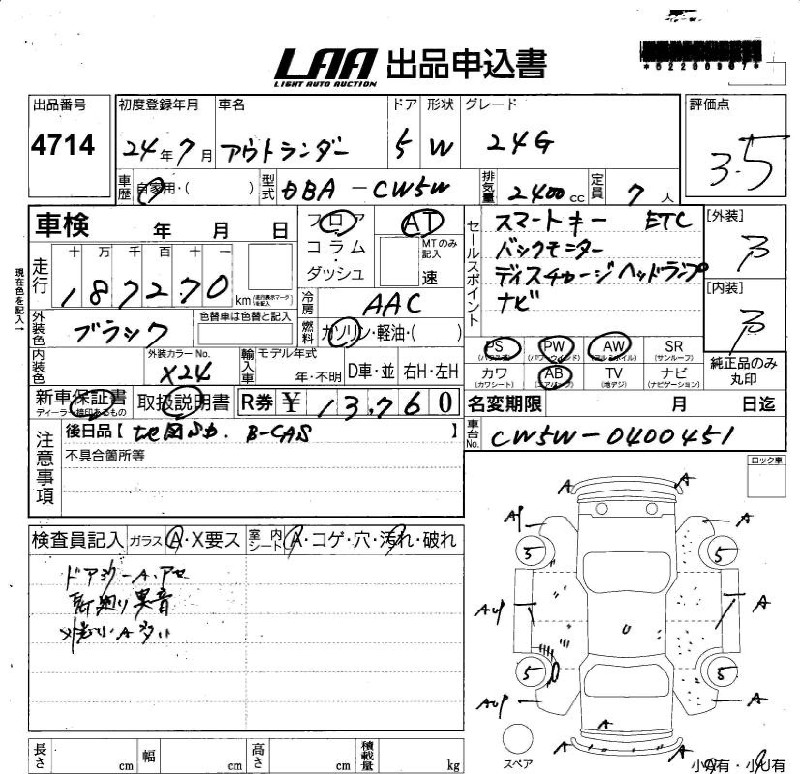 LAA 出品申込書
LIGHT AUTO AUCTION
*62200967*
出品番号 4714
初度登録年月 24年7月
車名 アウトランダー
ドア 5
形状 W
グレード 24G
評価点 3.5
車歴 自家用・( )
型式 DBA-CW5W
排気量 2400cc
定員 7人
車検 年 月 日
フロア コラム・ダッシュ
AT
MTのみ記入
速
セールスポイント
スマートキー ETC
バックモニター
ディスチャージヘッドランプ
ナビ
[外装] B
[内装] B
現在色を記入→
走行 十 万 千 百 十 一
187270 km
冷房 AAC
外装色 ブラック
色替車は色替と記入
燃料 ガソリン・軽油・( )
PS (パワステ)
PW (パワーウインド)
AW (アルミホイル)
SR (サンルーフ)
カワ (カワシート)
AB (エアバック)
TV (地デジ)
ナビ (ナビゲーション)
純正品のみ丸印
内装色
外装カラーNo. X24
輸入車 モデル年式 年・不明
D車・並
右H・左H
新車保証書
ディーラー捺印あるもの
取扱説明書
R券 ¥ 13,760
名変期限 月 日迄
注意事項
後日品【 B-CAS 】
不具合箇所等
車台No. CW5W-0400451
ロック車
検査員記入 ガラス A・X要ス
室内シート A・コゲ・穴・汚れ・破れ
異音
A多い
A A
AP A
5 5
A
5 5
A
A
A A
スペア
長さ cm 幅 cm 高さ cm 積載量 kg